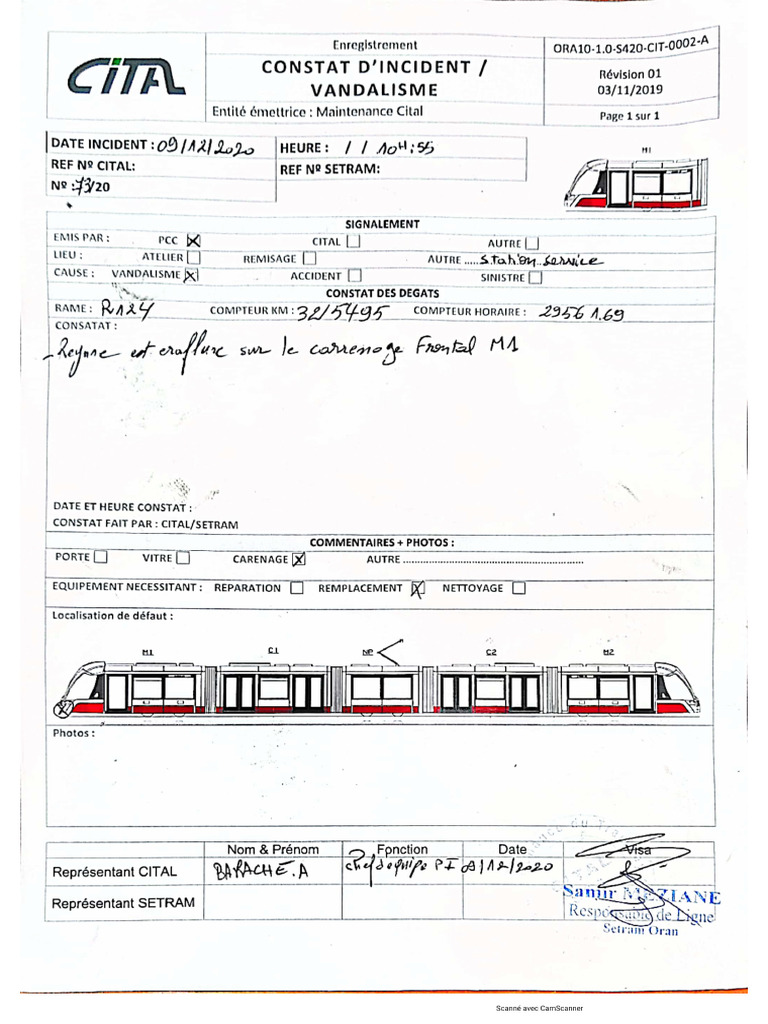 CITAL
Enregistrement
CONSTAT D'INCIDENT /
VANDALISME
Entité émettrice : Maintenance Cital
ORA10-1.0-S420-CIT-0002-A
Révision 01
03/11/2019
Page 1 sur 1
DATE INCIDENT : 09/12/2020
HEURE : / / 10H:55
REF Nº CITAL:
REF Nº SETRAM:
Nº : 73/20
M1
SIGNALEMENT
EMIS PAR : PCC CITAL AUTRE
LIEU : ATELIER REMISAGE AUTRE .....Station service
CAUSE : VANDALISME ACCIDENT SINISTRE
CONSTAT DES DEGATS
RAME : R124 COMPTEUR KM : 32/5495 COMPTEUR HORAIRE : 29561.69
CONSATAT :
est sur le carrenage Frontal M1
DATE ET HEURE CONSTAT :
CONSTAT FAIT PAR : CITAL/SETRAM
COMMENTAIRES + PHOTOS :
PORTE VITRE CARENAGE AUTRE ..........................................................
EQUIPEMENT NECESSITANT : REPARATION REMPLACEMENT NETTOYAGE
Localisation de défaut :
M1 C1 NP C2 M2
Photos :
Nom & Prénom Fonction Date Visa
Représentant CITAL BARACHE.A chef d'equipe PI 09/12/2020
Samir MEZIANE
Responsable de Ligne
Setram Oran
Représentant SETRAM
Scanné avec CamScanner